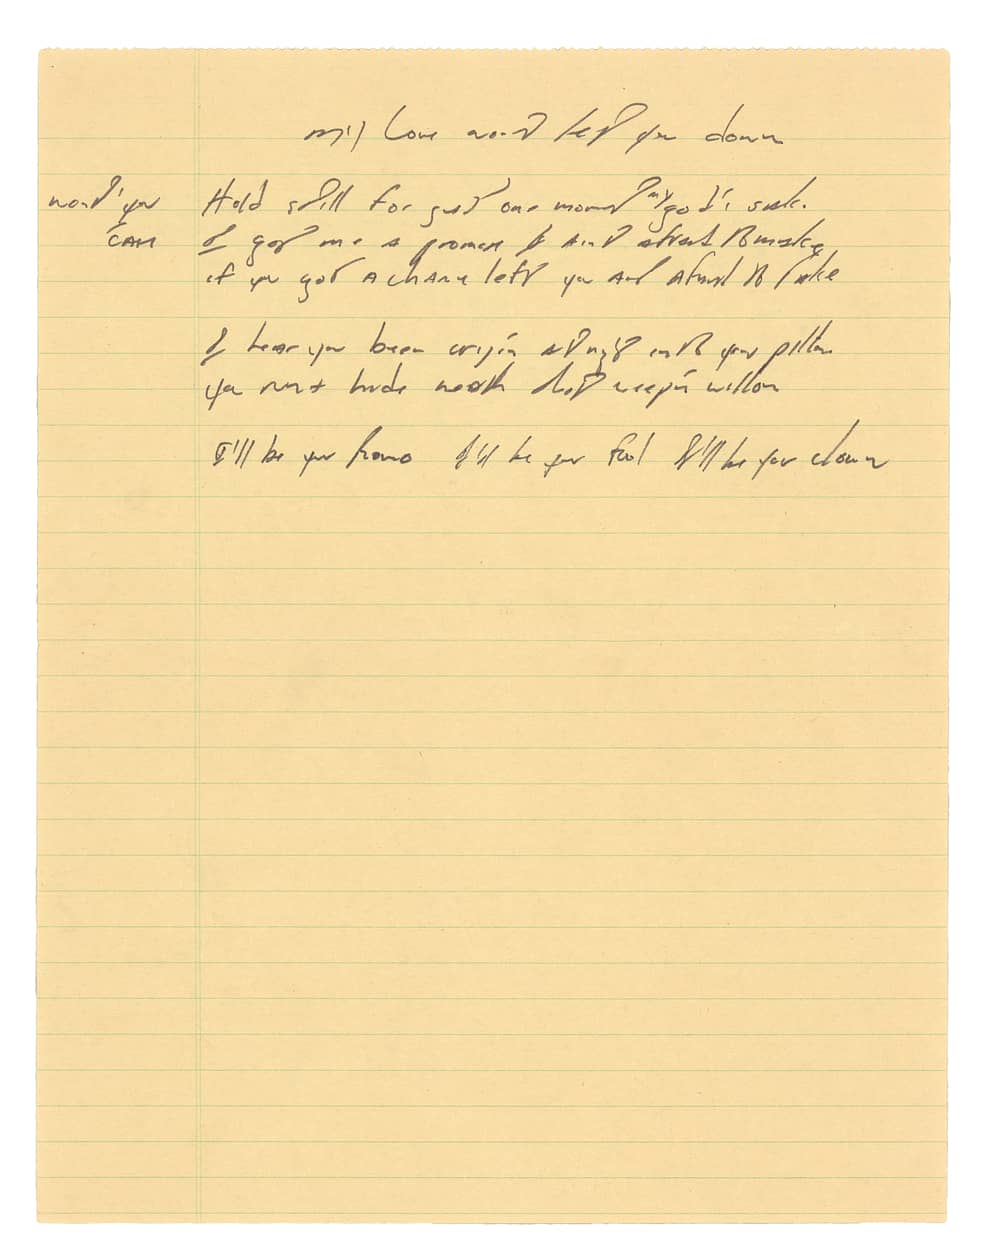 my love won't let you down
won't you Hold still for just one moment my god's sake.
can I got me a promise I ain't afraid to make
if you got a chance left you ain't afraid to take
I hear you been cryin at night into your pillow
you run + hide neath that weepin willow
I'll be your hero I'll be your fool I'll be your clown